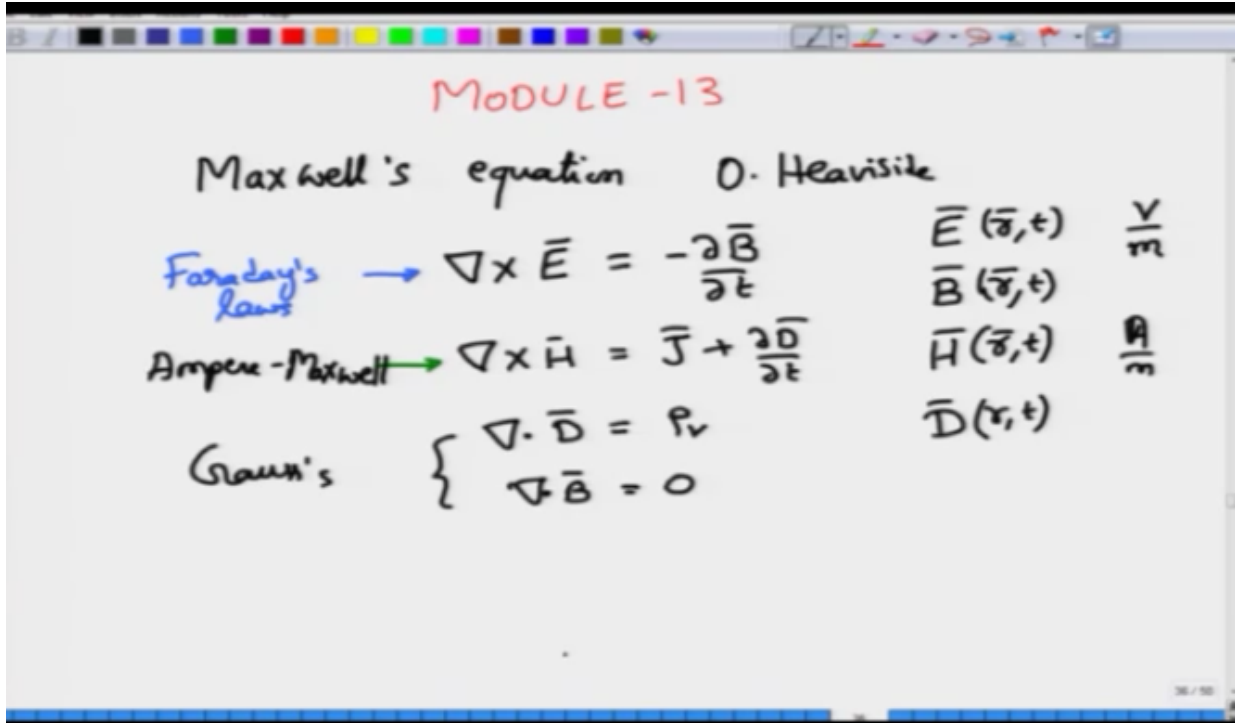 MODULE -13
Maxwell's equation O. Heaviside
Faraday's laws → ∇× E̅ = -∂B̅/∂t
Ampere-Maxwell → ∇× H̅ = J̅ + ∂D̅/∂t
Gauss's { ∇· D̅ = ρv
∇· B̅ = 0
E̅ (r̅,t) V/m
B̅ (r̅,t)
H̅ (r̅,t) A/m
D̅ (r,t)
36 / 50